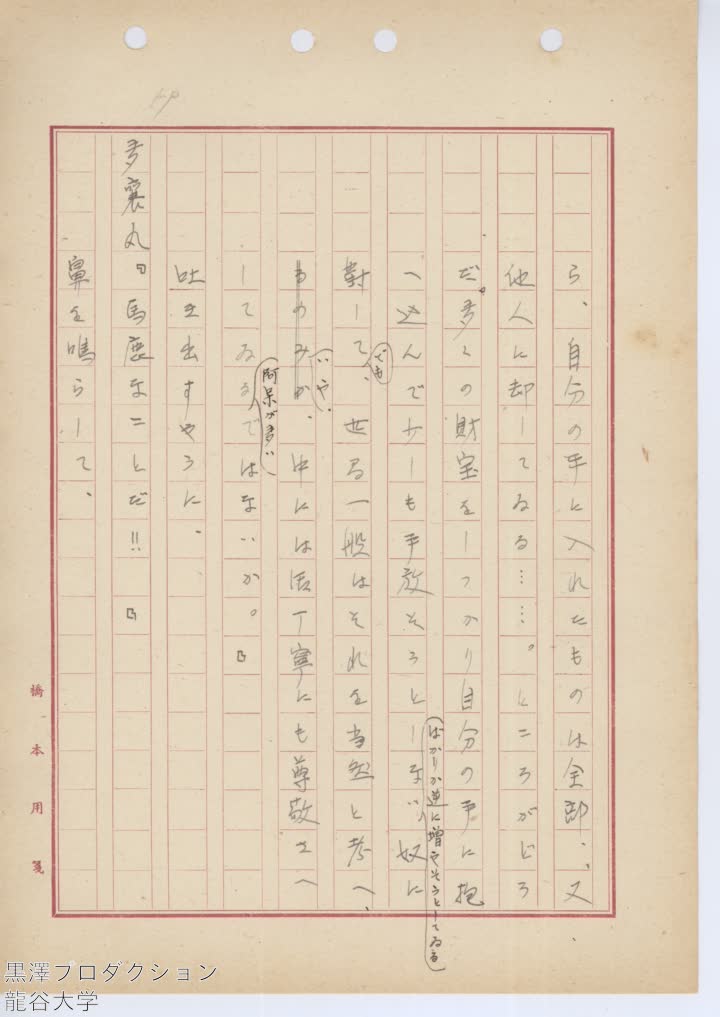 ら、自分の手に入れたものは全部、又
他人に却してゐる……。ところがどう
だ。多くの財宝をしつかり自分の手に抱
へ込んで少しも手放そうとしない奴に
ばかりか逆に増やそうとしてゐる
対して、世間一般はそれを当然と考へ、
でも
ものみか、中には丁寧にも尊敬さへ
いや、
してゐるではないか。』
阿呆が多い
吐き出すやうに、
多襄丸『馬鹿なことだ!! 』
鼻を鳴らして、
橋本用箋
黒澤プロダクション
龍谷大学